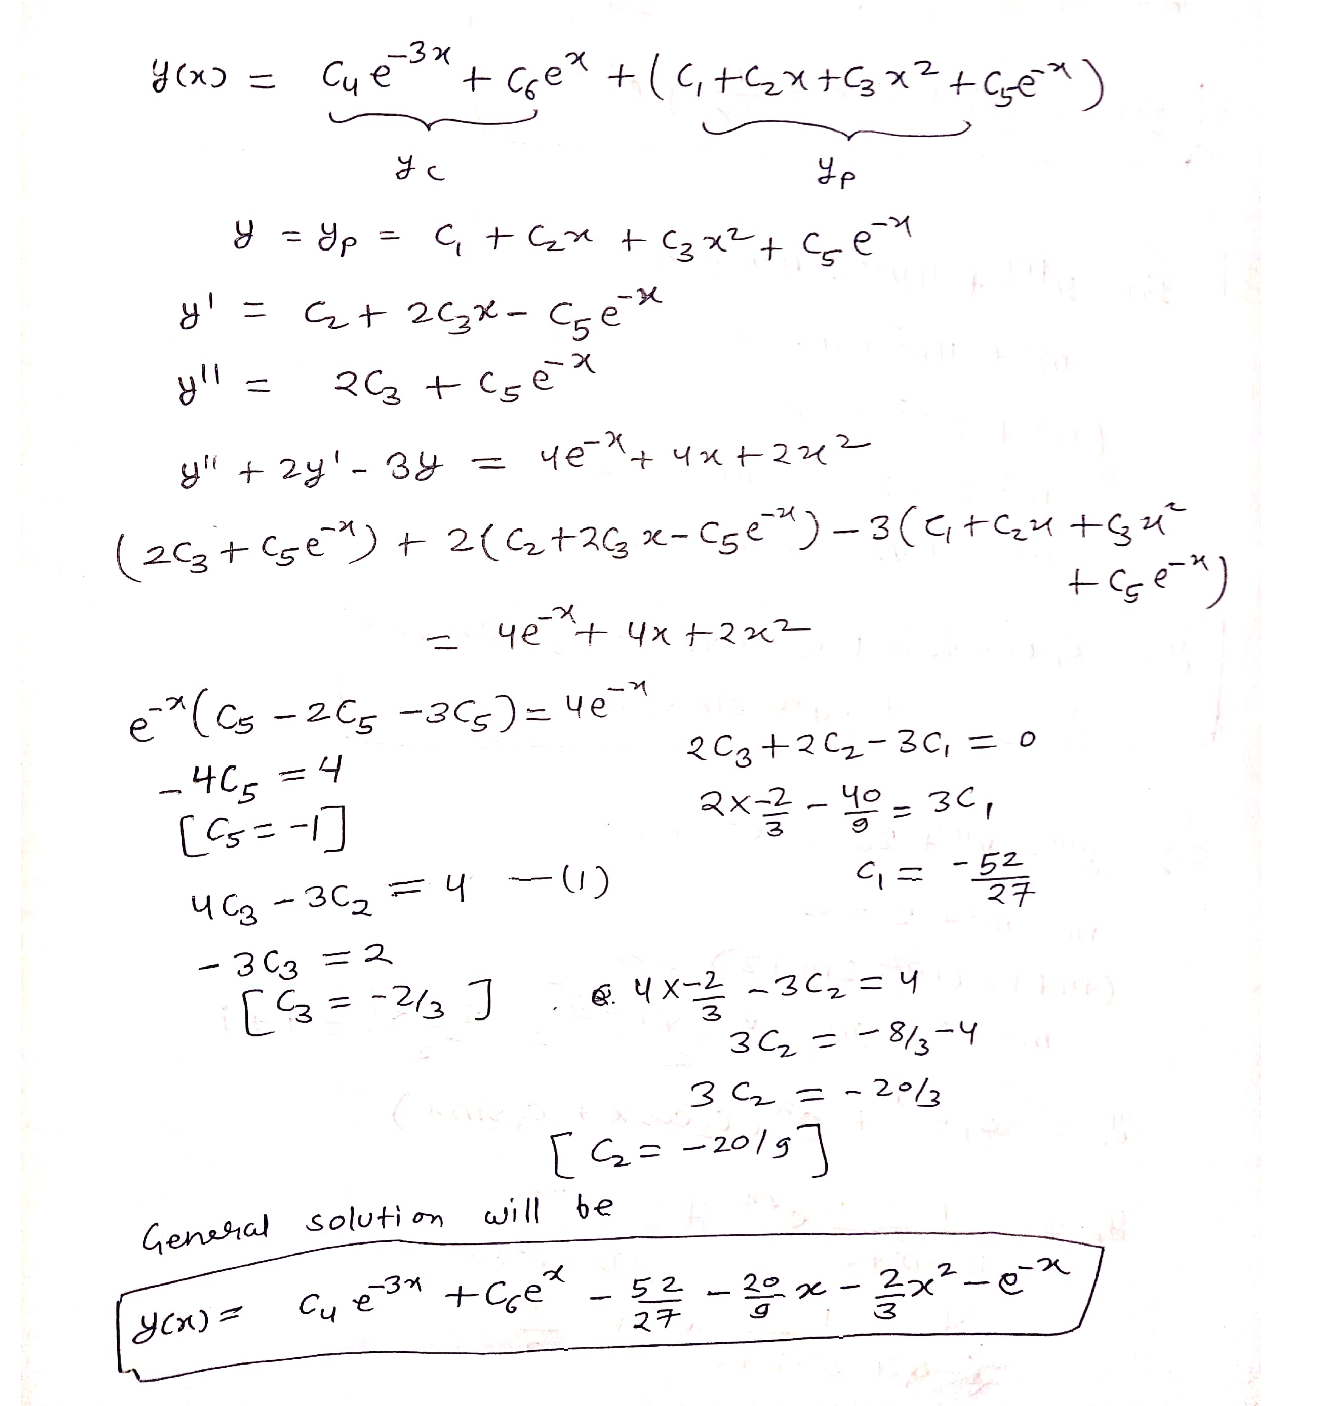 y(x) = C₄e⁻³ˣ + C₆eˣ + (C₁+C₂x+C₃x²+C₅e⁻ˣ)
y_c y_p
y = y_p = C₁ + C₂x + C₃x² + C₅e⁻ˣ
y' = C₂ + 2C₃x - C₅e⁻ˣ
y'' = 2C₃ + C₅e⁻ˣ
y'' + 2y' - 3y = 4e⁻ˣ + 4x + 2x²
(2C₃ + C₅e⁻ˣ) + 2(C₂+2C₃x-C₅e⁻ˣ) - 3(C₁+C₂x+C₃x²
+C₅e⁻ˣ)
= 4e⁻ˣ + 4x + 2x²
e⁻ˣ(C₅ - 2C₅ - 3C₅) = 4e⁻ˣ
-4C₅ = 4
[C₅ = -1]
4C₃ - 3C₂ = 4 —(1)
-3C₃ = 2
[C₃ = -2/3]
2C₃ + 2C₂ - 3C₁ = 0
2×-2/3 - 40/9 = 3C₁
C₁ = -52/27
4×-2/3 - 3C₂ = 4
3C₂ = -8/3-4
3C₂ = -20/3
[C₂ = -20/9]
General solution will be
y(x) = C₄e⁻³ˣ + C₆eˣ - 52/27 - 20/9 x - 2/3 x² - e⁻ˣ